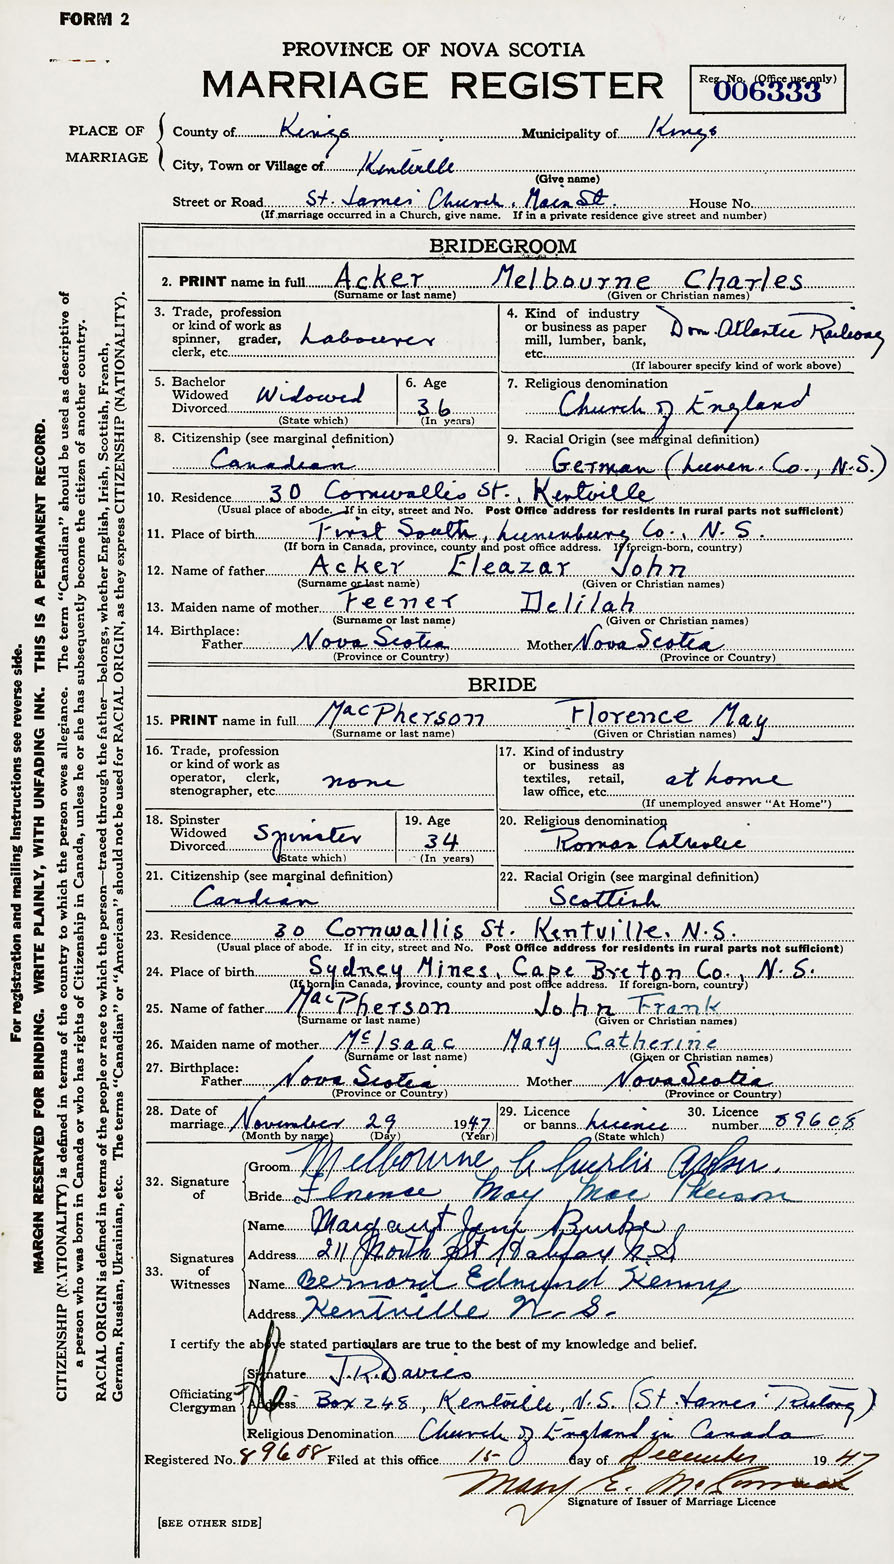 FORM 2
PROVINCE OF NOVA SCOTIA
MARRIAGE REGISTER
Reg. No. (Office use only)
006333
PLACE OF MARRIAGE
County of Kings Municipality of Kings
City, Town or Village of Kentville
(Give name)
Street or Road St. James Church, Main St. House No.
(If marriage occurred in a Church, give name. If in a private residence give street and number)
BRIDEGROOM
2. PRINT name in full Acker Melbourne Charles
(Surname or last name) (Given or Christian names)
3. Trade, profession or kind of work as spinner, grader, clerk, etc. Labourer
4. Kind of industry or business as paper mill, lumber, bank, etc. Dom. Atlantic Railway
(If labourer specify kind of work above)
5. Bachelor Widowed Divorced Widowed
(State which)
6. Age 36
(In years)
7. Religious denomination Church of England
8. Citizenship (see marginal definition)
Canadian
9. Racial Origin (see marginal definition)
German (Lunen. Co., N.S.)
10. Residence 30 Cornwallis St., Kentville
(Usual place of abode. If in city, street and No. Post Office address for residents in rural parts not sufficient)
11. Place of birth First South, Lunenburg Co., N.S.
(If born in Canada, province, county and post office address. If foreign-born, country)
12. Name of father Acker Eleazar John
(Surname or last name) (Given or Christian names)
13. Maiden name of mother Feener Delilah
(Surname or last name) (Given or Christian names)
14. Birthplace:
Father Nova Scotia Mother Nova Scotia
(Province or Country) (Province or Country)
BRIDE
15. PRINT name in full MacPherson Florence May
(Surname or last name) (Given or Christian names)
16. Trade, profession or kind of work as operator, clerk, stenographer, etc. none
17. Kind of industry or business as textiles, retail, law office, etc. at home
(If unemployed answer "At Home")
18. Spinster Widowed Divorced Spinster
(State which)
19. Age 34
(In years)
20. Religious denomination
Roman Catholic
21. Citizenship (see marginal definition)
Candian
22. Racial Origin (see marginal definition)
Scottish
23. Residence 30 Cornwallis St. Kentville, N.S.
(Usual place of abode. If in city, street and No. Post Office address for residents in rural parts not sufficient)
24. Place of birth Sydney Mines, Cape Breton Co., N.S.
(If born in Canada, province, county and post office address. If foreign-born, country)
25. Name of father MacPherson John Frank
(Surname or last name) (Given or Christian names)
26. Maiden name of mother McIsaac Mary Catherine
(Surname or last name) (Given or Christian names)
27. Birthplace:
Father Nova Scotia Mother Nova Scotia
(Province or Country) (Province or Country)
28. Date of marriage November 29 1947
(Month by name) (Day) (Year)
29. Licence or banns Licence
(State which)
30. Licence number 89608
32. Signature of
Groom Melbourne C
Bride Florence May MacPherson
33. Signatures of Witnesses
Name Margaret Jane Burke
Address 211 North St Halifax N.S
Name Bernard Edmund Kenny
Address Kentville N.S.
I certify the above stated particulars are true to the best of my knowledge and belief.
Officiating Clergyman
Signature J.R. Davies
Address Box 248, Kentville, N.S. (St. James Rectory)
Religious Denomination Church of England in Canada
Registered No. 89608 Filed at this office 15 day of December 1947
Mary E.
Signature of Issuer of Marriage Licence
[SEE OTHER SIDE]
For registration and mailing instructions see reverse side.
MARGIN RESERVED FOR BINDING. WRITE PLAINLY, WITH UNFADING INK. THIS IS A PERMANENT RECORD.
CITIZENSHIP (NATIONALITY) is defined in terms of the country to which the person owes allegiance. The term "Canadian" should be used as descriptive of
a person who was born in Canada or who has rights of Citizenship in Canada, unless he or she has subsequently become the citizen of another country.
RACIAL ORIGIN is defined in terms of the people or race to which the person—traced through the father—belongs, whether English, Irish, Scottish, French,
German, Russian, Ukrainian, etc. The terms "Canadian" or "American" should not be used for RACIAL ORIGIN, as they express CITIZENSHIP (NATIONALITY).